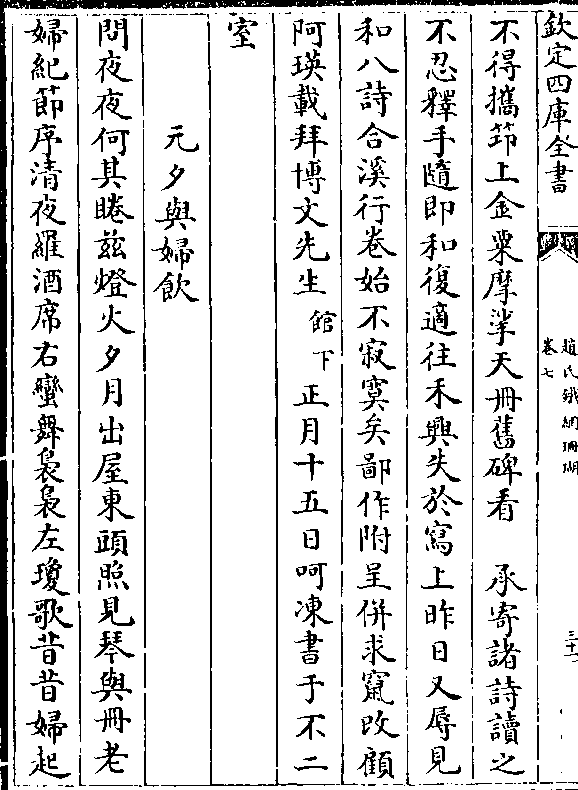 欽定四庫全書
趙氏鐵網珊瑚
卷七
三十二
不得攜笻上金粟摩挲天冊舊碑看　承寄諸詩讀之
不忍釋手隨即和復適往禾興失於寫上昨日又辱見
和八詩合溪行卷始不寂寞矣鄙作附呈併求竄改顧
阿瑛載拜博文先生館下正月十五日呵凍書于不二
室
元夕與婦飲
問夜夜何其睠兹燈火夕月出屋東頭照見琴與冊老
婦紀節序清夜羅酒席右蠻舞裊裊左瓊歌昔昔婦起